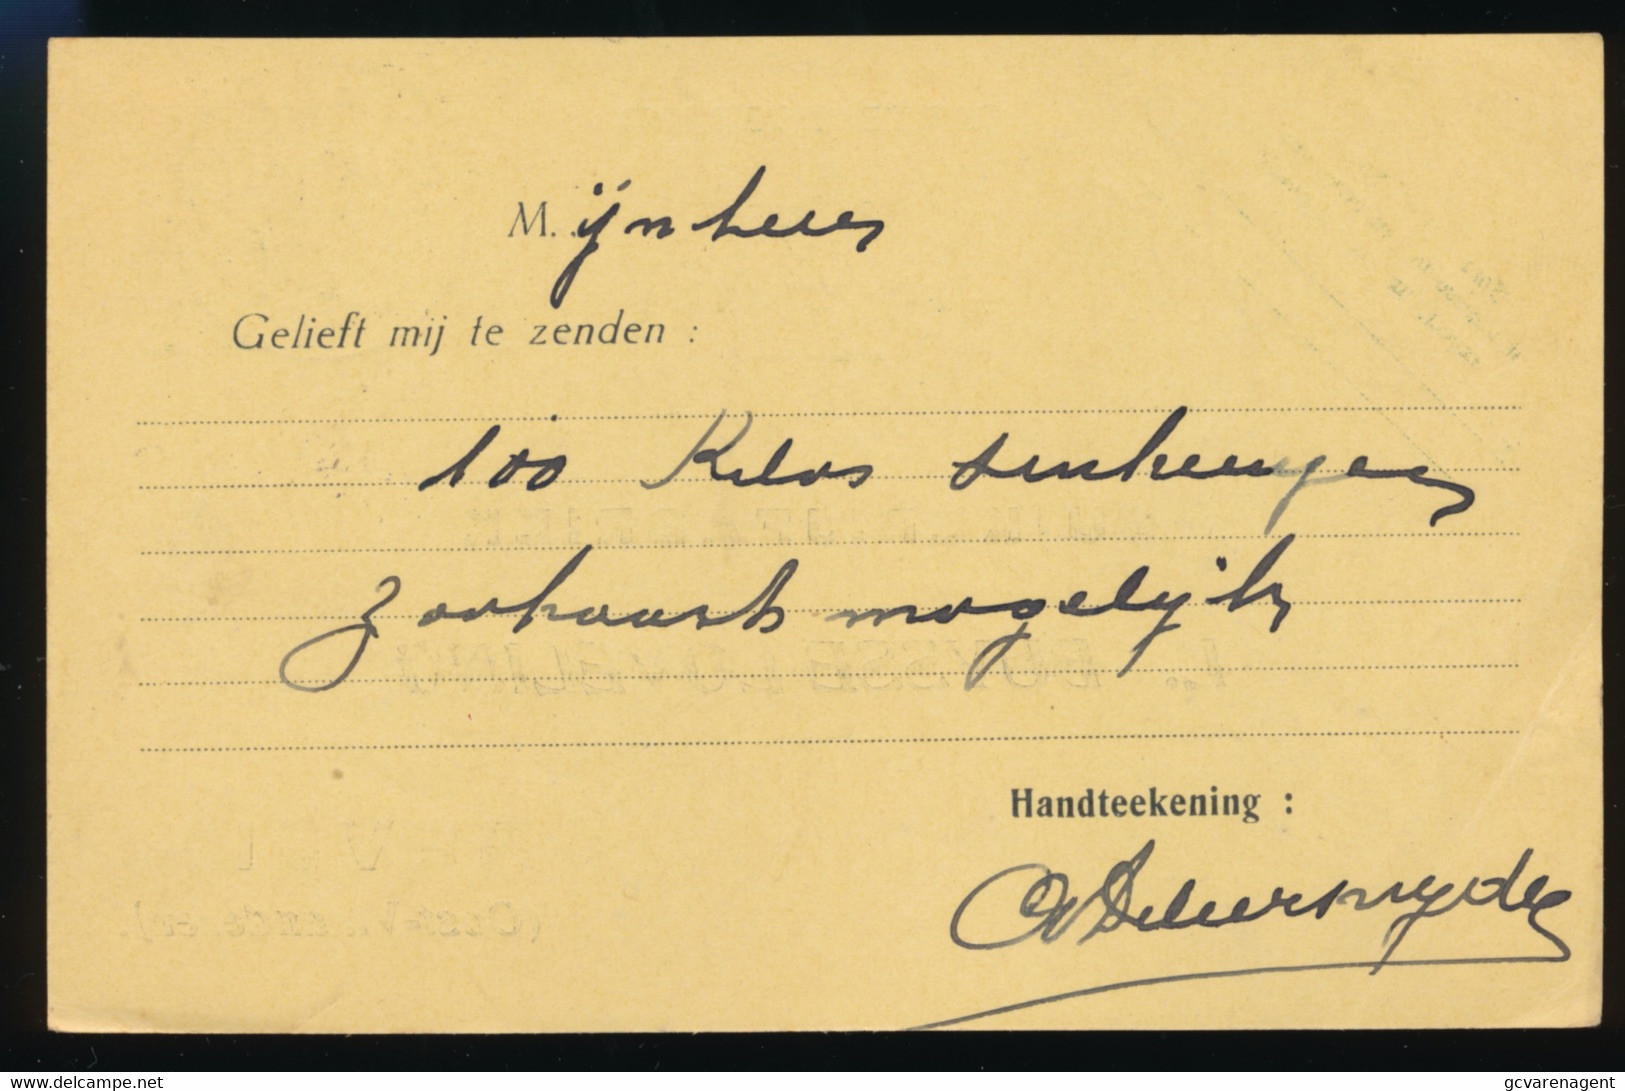 M. ijnheer
Gelieft mij te zenden :
100 Kilos
zoohaast mogelijk
Handteekening :
www.delcampe.net
gcvarenagent